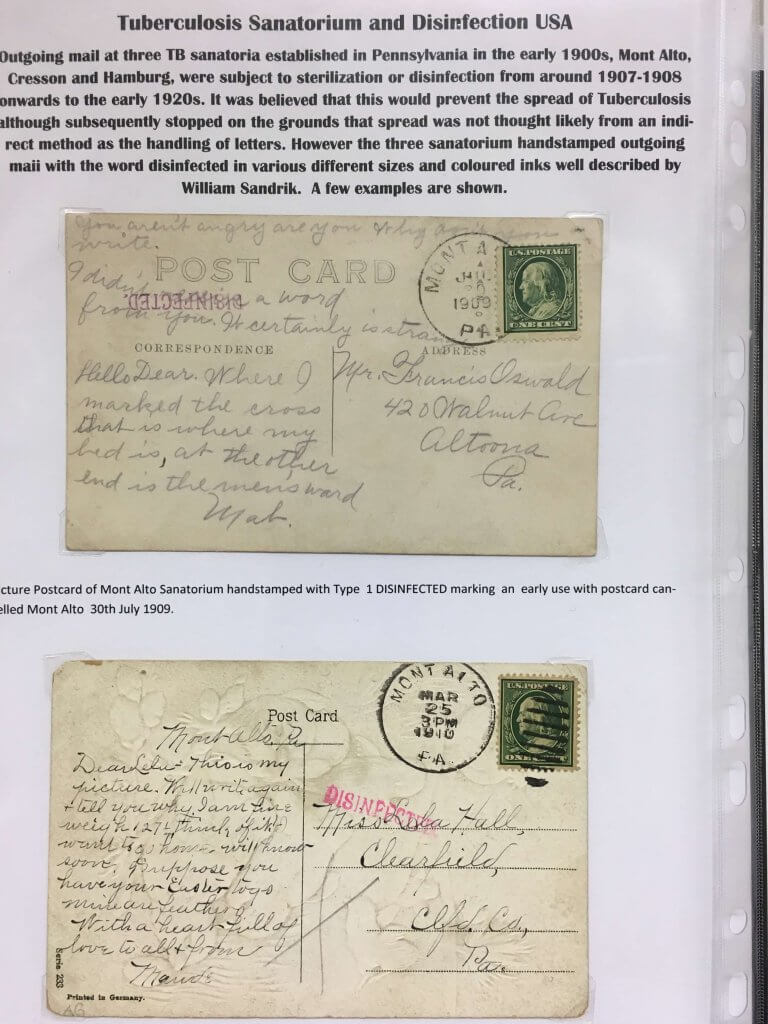 Tuberculosis Sanatorium and Disinfection USA
Outgoing mail at three TB sanatoria established in Pennsylvania in the early 1900s, Mont Alto,
Cresson and Hamburg, were subject to sterilization or disinfection from around 1907-1908
onwards to the early 1920s. It was believed that this would prevent the spread of Tuberculosis
although subsequently stopped on the grounds that spread was not thought likely from an indi-
rect method as the handling of letters. However the three sanatorium handstamped outgoing
mail with the word disinfected in various different sizes and coloured inks well described by
William Sandrik. A few examples are shown.
You aren't angry are you Why don't you
write.
I didn't a word
from you. It certainly is
POST CARD
DISINFECTED.
MONT A
1909
PA
U.S. POSTAGE
ONE CENT
CORRESPONDENCE
ADDRESS
Hello Dear. Where I
marked the cross
that is where my
bed is, at the other
end is the men's ward
Mab.
Mr. Francis Oswald
420 Walnut Ave
Altoona
Pa.
cture Postcard of Mont Alto Sanatorium handstamped with Type 1 DISINFECTED marking an early use with postcard can-
elled Mont Alto 30th July 1909.
Post Card
MONT ALTO
MAR
25
3 PM
1910
PA.
U.S. POSTAGE
ONE
Mont Alto, Pa
Dear Lela - This is my
picture. Will write again
+ tell you why. I am fine
weigh 127 think if I
want to go home will know
soon. Suppose you
have your Easter togs
mine are feathers
With a heart full of
love to all + from
Maude
DISINFECTED
Miss Lela Hall,
Clearfield,
Clfd. Co.,
Pa.
Serie 233
Printed in Germany.
AG